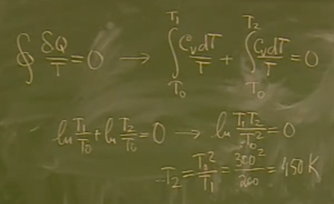 ∮ δQ/T = 0 → ∫_{T₀}^{T₁} CᵥdT/T + ∫_{T₀}^{T₂} CᵥdT/T = 0
ln T₁/T₀ + ln T₂/T₀ = 0 → ln T₁T₂/T₀² = 0
T₂ = T₀²/T₁ = 300²/200 = 450 K